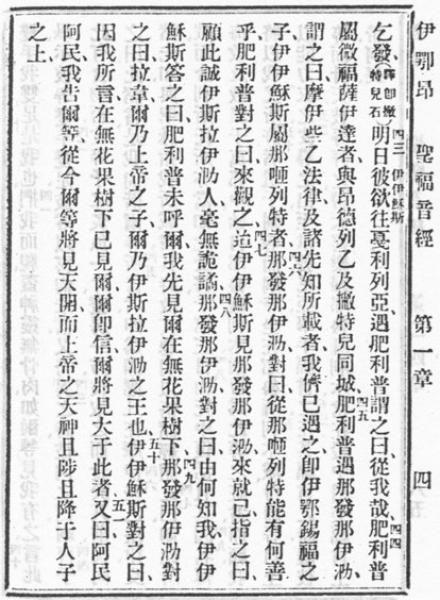 伊鄂昂 聖福音經 第一章 四
乞發(譯即撇特兒石)、四三 伊伊穌斯 明日彼欲往戞利列亞、遇肥利普、謂之曰、從我哉、四四肥利普
屬微福薩伊達者、與昂德列乙及撇特兒同城、四五肥利普遇那發那伊泐、
謂之曰、摩伊些乙法律及諸先知所載者、我儕已遇之、即伊鄂錫福之
子、伊伊穌斯屬那咂列特者、四六那發那伊泐對曰、從那咂列特能有何善
乎、肥利普對之曰、來觀之、四七迨伊伊穌斯見那發那伊泐來就己、指之曰、
顧此誠伊斯拉伊泐人、毫無詭譎、四八那發那伊泐對之曰、由何知我、伊伊
穌斯答之曰、肥利普未呼爾、我先見爾在無花果樹下、四九那發那伊泐對
之曰、拉韋、爾乃上帝之子、爾乃伊斯拉伊泐之王也、五十伊伊穌斯對之曰、
因我所言在無花果樹下已見爾、爾即信、爾將見大于此者、五一又曰、阿民
阿民、我告爾等、從今爾等將見天開、而上帝之天神、且陟且降于人子
之上、